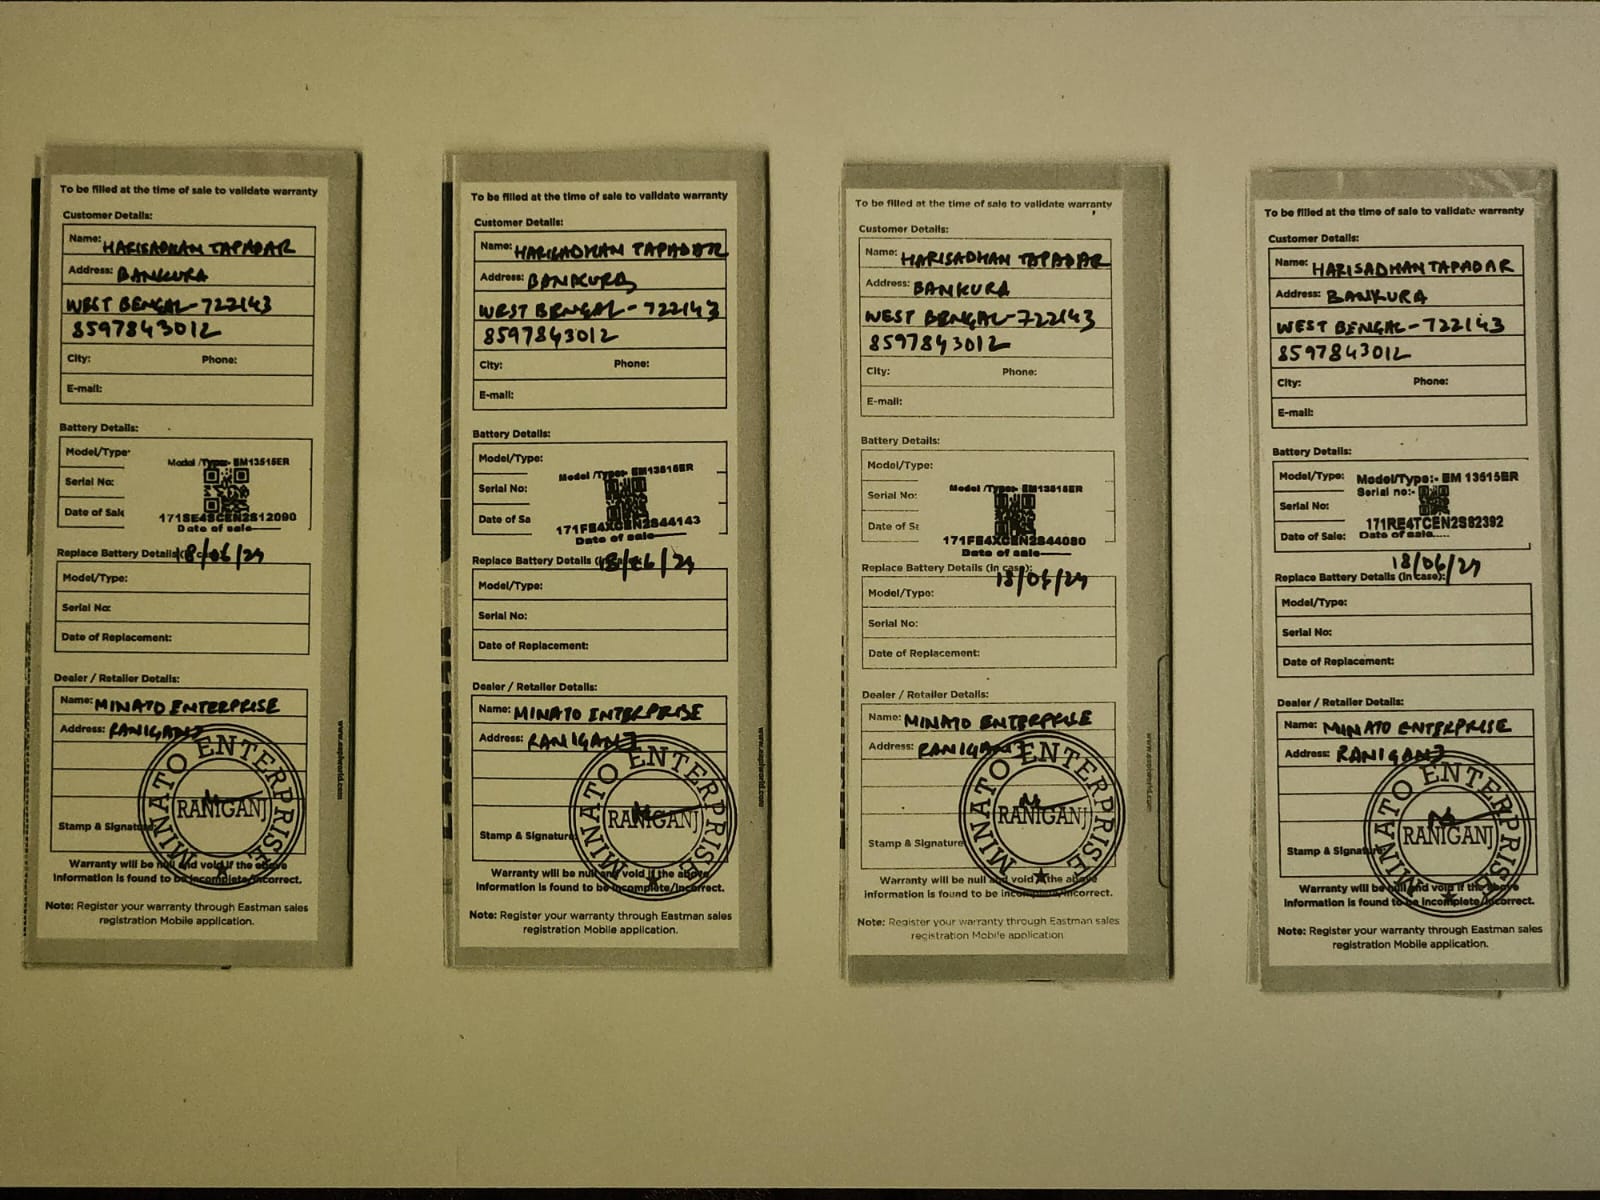 To be filled at the time of sale to validate warranty
Customer Details:
Name: HARISADHAN TAPADAR
Address: BANKURA
WEST BENGAL-722143
8597843012
City: Phone:
E-mail:
Battery Details:
Model/Type:
Model /Type:- EM13515ER
Serial No:
Date of Sale
171SE4SCEN2S12090
Date of sale
18/06/24
Replace Battery Details
Model/Type:
Serial No:
Date of Replacement:
Dealer / Retailer Details:
Name: MINATO ENTERPRISE
Address: RANIGANJ
Stamp & Signature
MINATO ENTERPRISE
RANIGANJ
Warranty will be null and void if the above
information is found to be incomplete/incorrect.
Note: Register your warranty through Eastman sales
registration Mobile application.
To be filled at the time of sale to validate warranty
Customer Details:
Name: HARISADHAN TAPADAR
Address: BANKURA
WEST BENGAL-722143
8597843012
City: Phone:
E-mail:
Battery Details:
Model/Type:
Model /Type:- EM13515ER
Serial No:
Date of Sa
171FE4XCEN2S44143
Date of sale
18/06/24
Replace Battery Details
Model/Type:
Serial No:
Date of Replacement:
Dealer / Retailer Details:
Name: MINATO ENTERPRISE
Address: RANIGANJ
Stamp & Signature
MINATO ENTERPRISE
RANIGANJ
Warranty will be null and void if the above
information is found to be incomplete/incorrect.
Note: Register your warranty through Eastman sales
registration Mobile application.
www.eaplworld.com
To be filled at the time of sale to validate warranty
Customer Details:
Name: HARISADHAN TAPADAR
Address: BANKURA
WEST BENGAL-722143
8597843012
City: Phone:
E-mail:
Battery Details:
Model/Type:
Model /Type:- EM13515ER
Serial No:
Date of Sa
171FE4XCEN2S44080
Date of sale
Replace Battery Details (in case):
18/06/24
Model/Type:
Serial No:
Date of Replacement:
Dealer / Retailer Details:
Name: MINATO ENTERPRISE
Address: RANIGANJ
Stamp & Signature
MINATO ENTERPRISE
RANIGANJ
Warranty will be null and void if the above
information is found to be incomplete/incorrect.
Note: Register your warranty through Eastman sales
registration Mobile application
To be filled at the time of sale to validate warranty
Customer Details:
Name: HARISADHAN TAPADAR
Address: BANKURA
WEST BENGAL-722143
8597843012
City: Phone:
E-mail:
Battery Details:
Model/Type: Model/Type:- EM 13515ER
Serial no:-
Serial No:
171RE4TCEN2S82392
Date of Sale: Date of sale.....
18/06/24
Replace Battery Details (in case):
Model/Type:
Serial No:
Date of Replacement:
Dealer / Retailer Details:
Name: MINATO ENTERPRISE
Address: RANIGANJ
Stamp & Signature
MINATO ENTERPRISE
RANIGANJ
Warranty will be null and void if the above
information is found to be incomplete/incorrect.
Note: Register your warranty through Eastman sales
registration Mobile application.